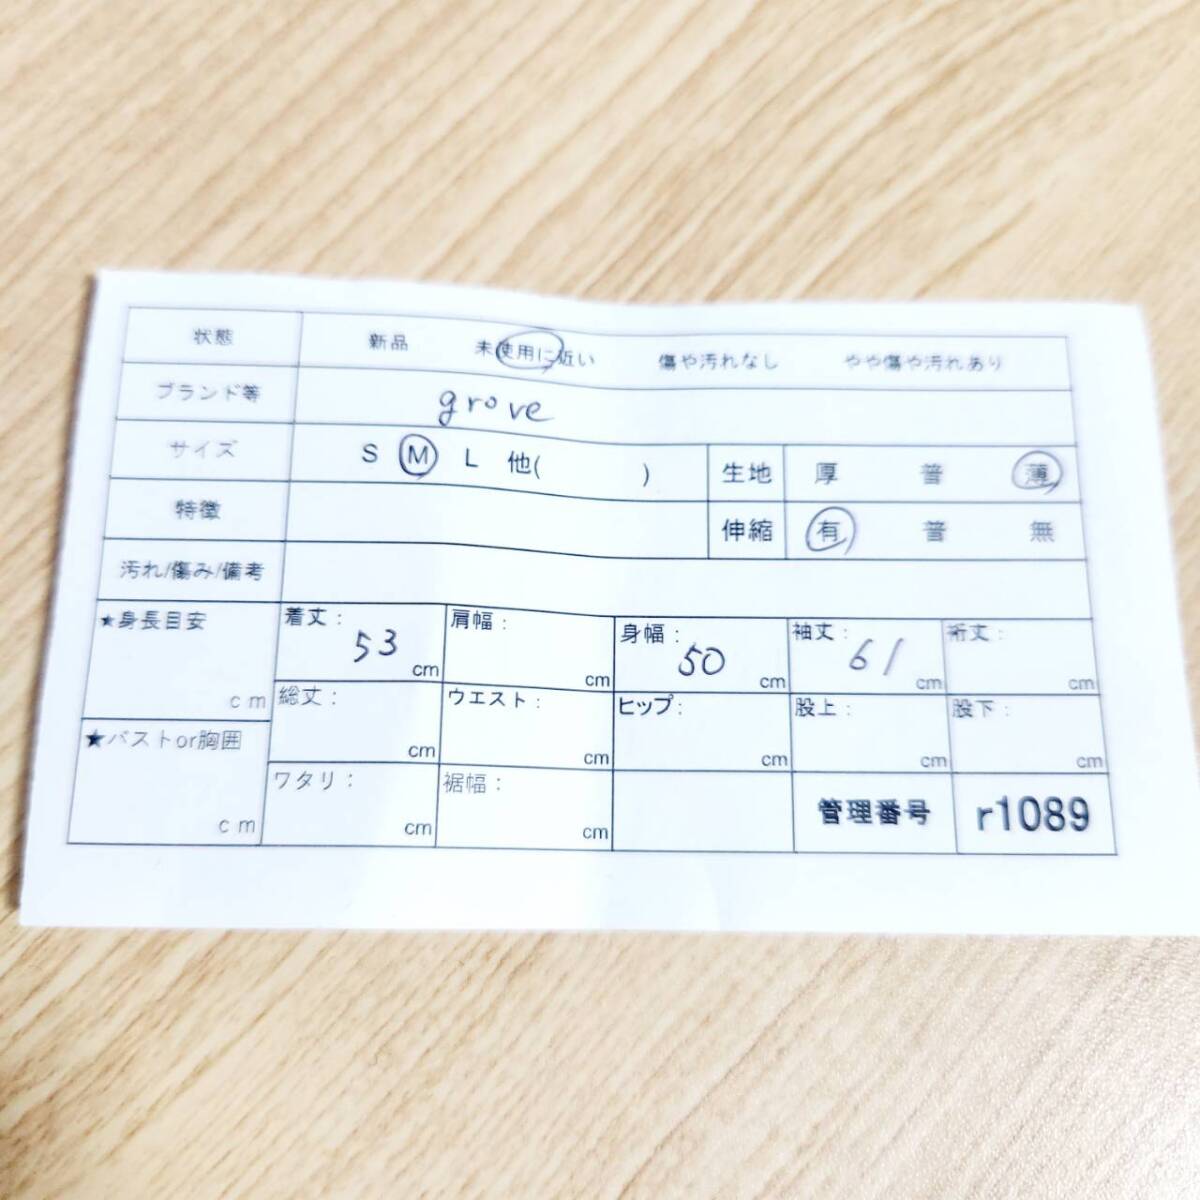 状態 新品 未使用に近い 傷や汚れなし やや傷や汚れあり
ブランド等 grove
サイズ S M L 他( ) 生地 厚 普 薄
特徴 伸縮 有 普 無
汚れ/傷み/備考
★身長目安 cm
着丈: 53 cm 肩幅: cm 身幅: 50 cm 袖丈: 61 cm 裄丈: cm
総丈: cm ウエスト: cm ヒップ: cm 股上: cm 股下: cm
★バストor胸囲 cm
ワタリ: cm 裾幅: cm 管理番号 r1089